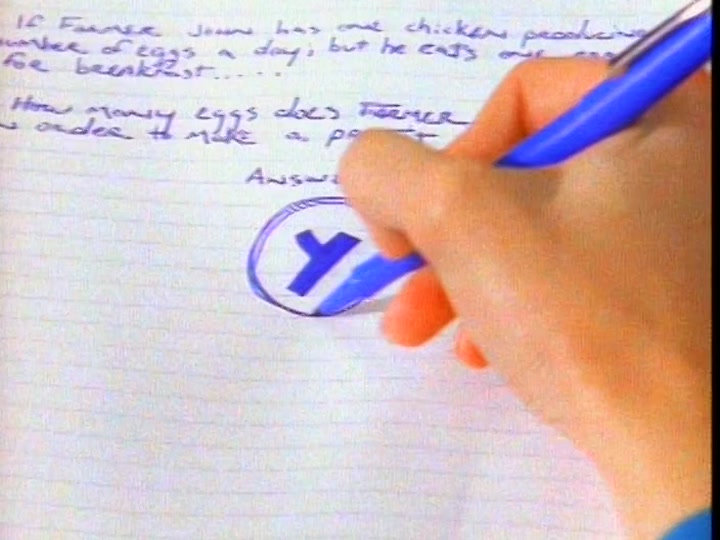 If Farmer John has one chicken producing
number of eggs a day; but he eats one egg
for breakfast.....
How many eggs does Farmer
order to make a profit
Answ
Y